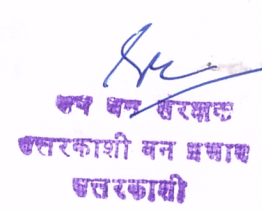 उप वन संरक्षक
उत्तरकाशी वन प्रभाग
उत्तरकाशी